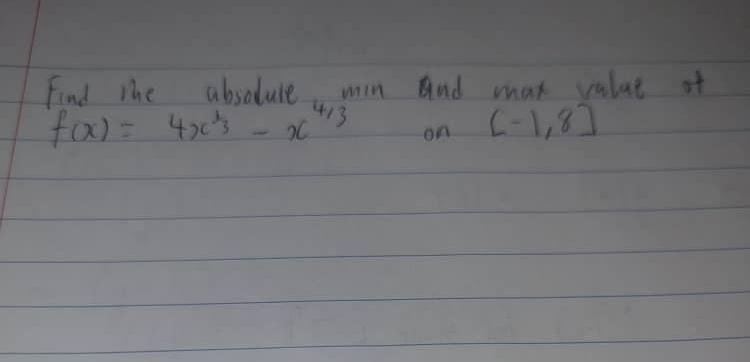 Find the absolute min and max value of
f(x) = 4x^{1/3} - x^{4/3} on [-1,8]